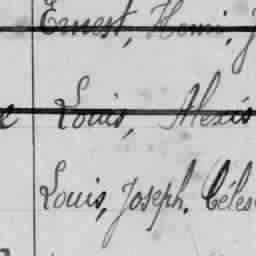 Ernest, Henri, J
Louis, Alexis
Louis, Joseph, Céles